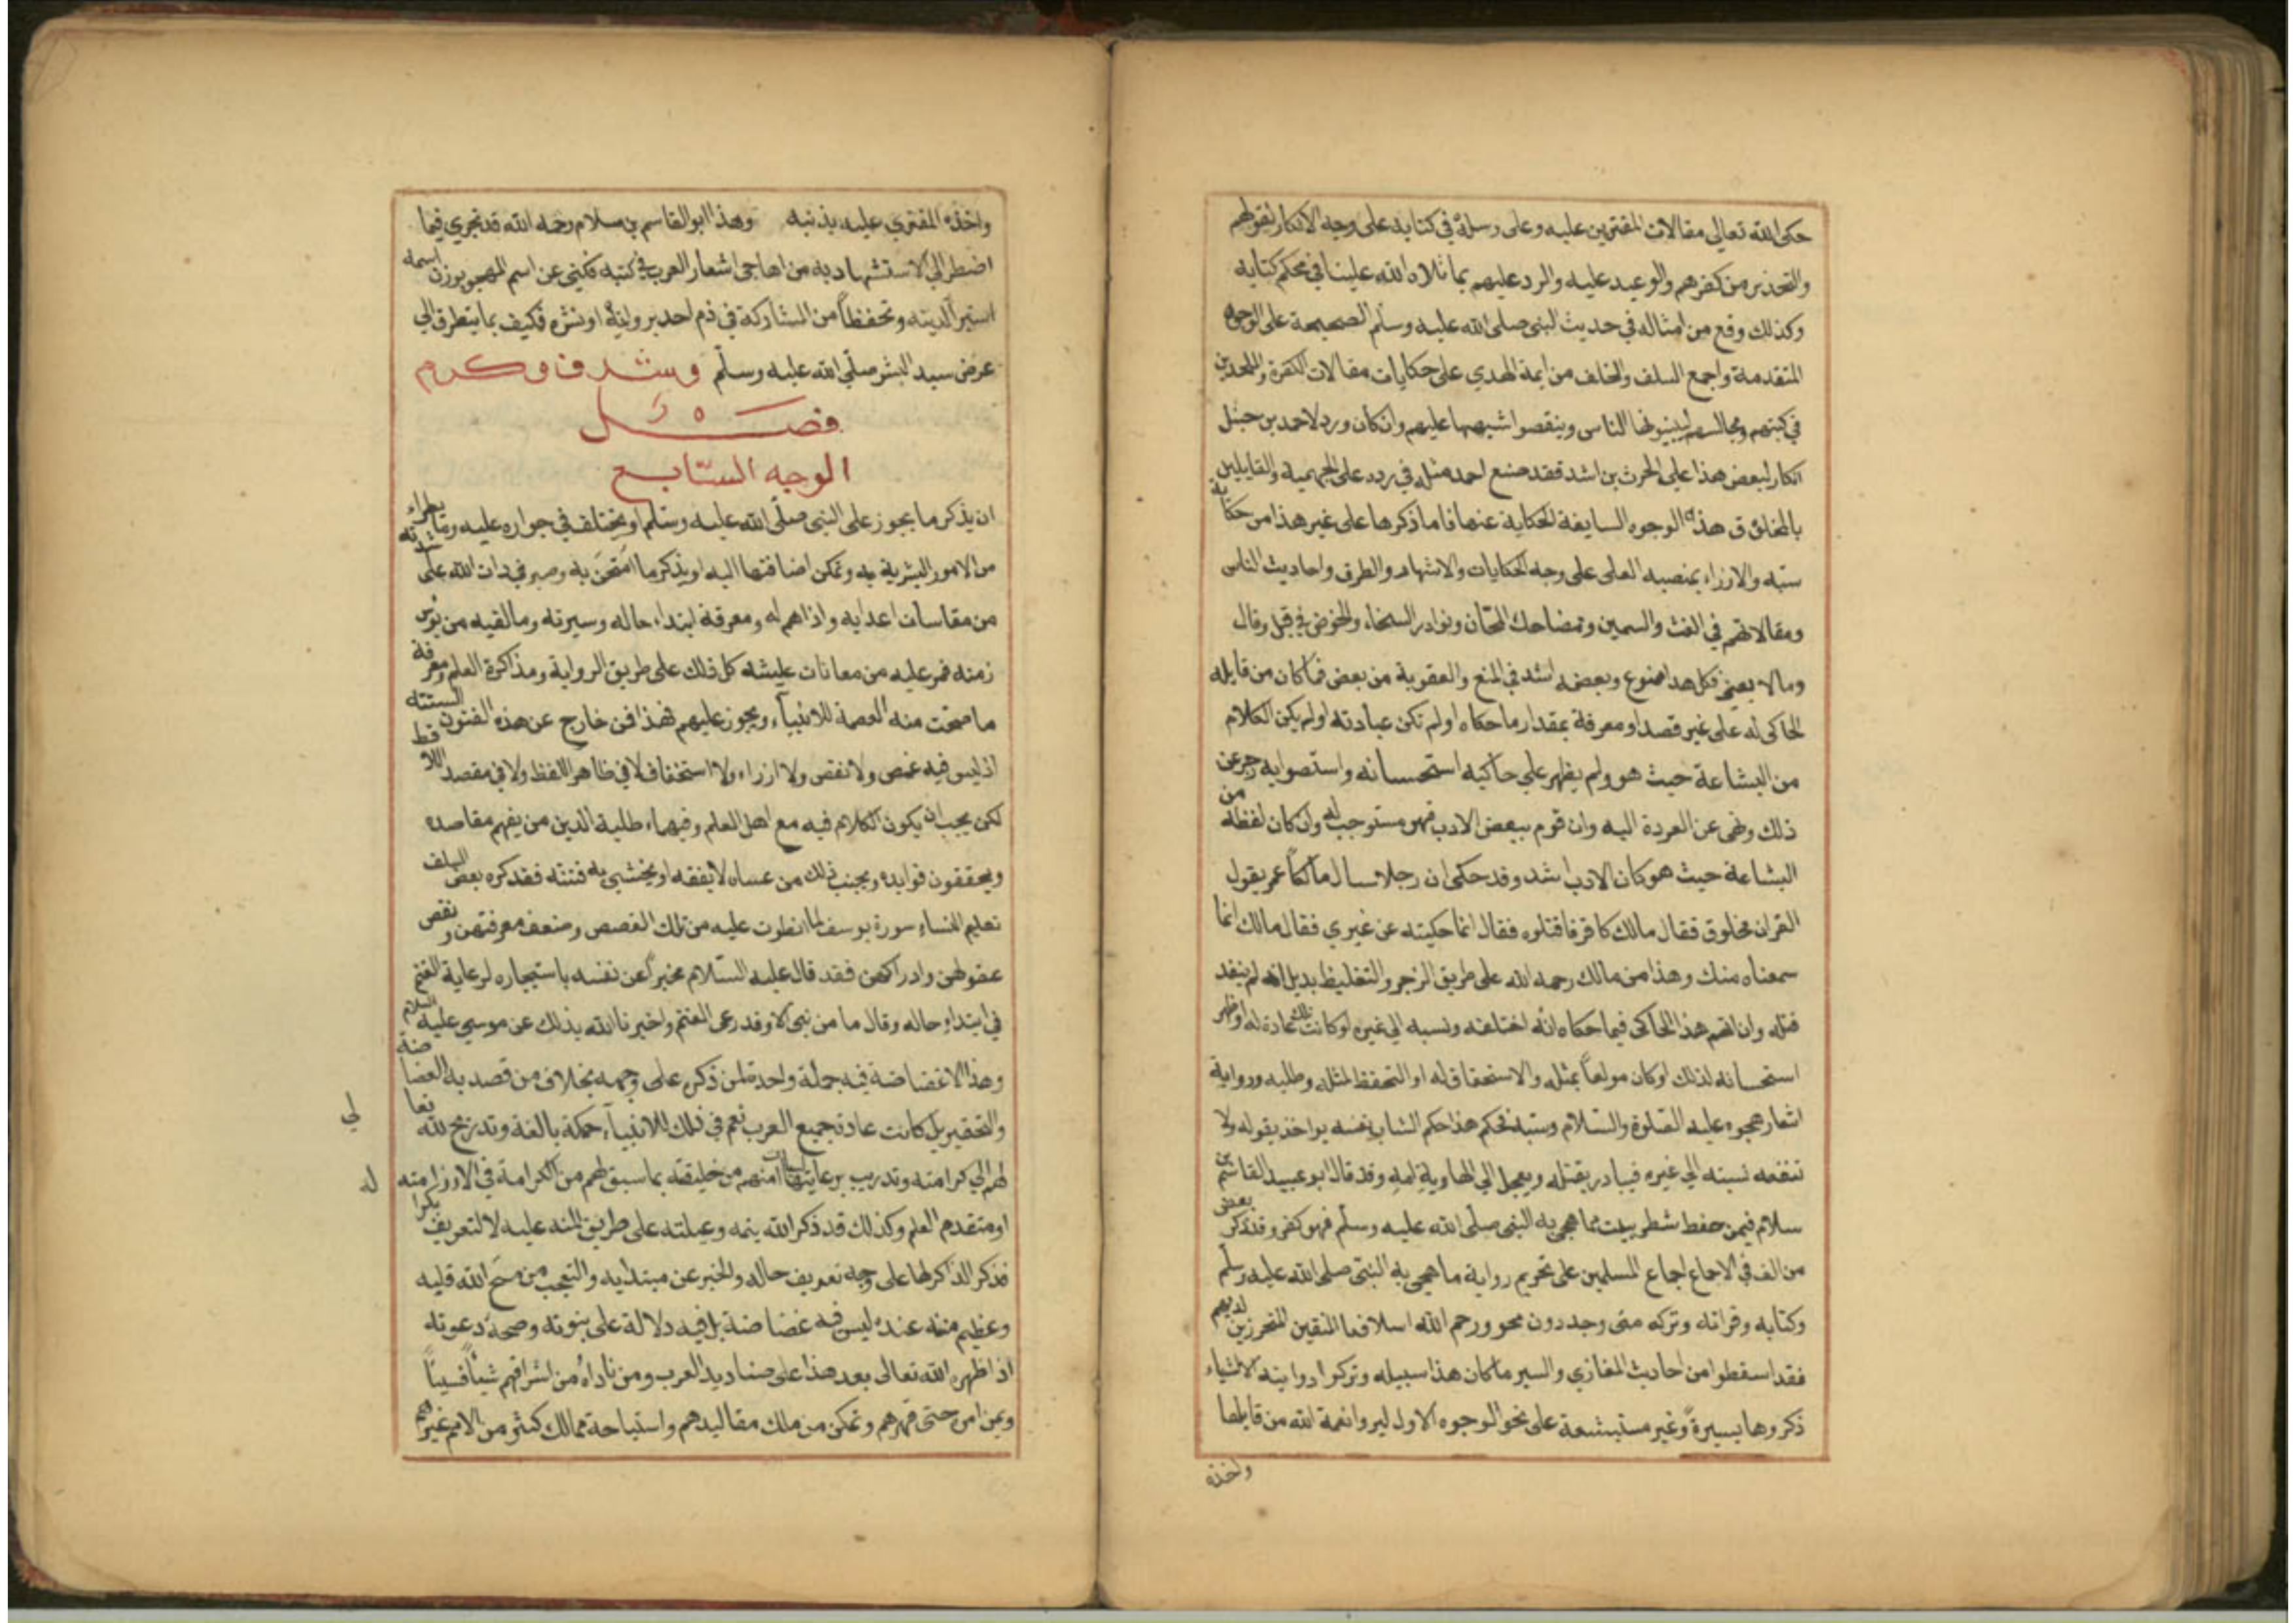 حكى الله تعالى مقالات المفترين عليه وعلى رسله في كتابه على وجه الانكار لقولهم
والتحذير من كفرهم والوعيد عليه والرد عليهم بما تلاه الله علينا في محكم كتابه
وكذلك وقع من امثاله في حديث النبى صلى الله عليه وسلم الصحيحة على الوجوه
المتقدمة واجمع السلف والخلف من ايمة الهدي على حكايات مقالات الكفرة والملحدين
في كتبهم ومجالسهم ليبينونها الناس وينقصوا شبهها عليهم وان كان ورد لاحمد بن حنبل
انكار لبعض هذا على الحرث بن اشد فقد صنع احمد مثله في رده على الجهمية والقايلين
بالمخلق ق هذه الوجوه السايغة الحكاية عنها فاما ذكرها على غير هذا من حكاية
سبه والازراء بمنصبه العلى على وجه الحكايات والاشهاد والطرف واحاديث الناس
ومقالاتهم في الغث والسمين ومضاحك المجان ونوادر السخفاء والخوض في قيل وقال
ومالا يعنى فكل هذا ممنوع وبعضه اشد في المنع والعقوبة من بعض فما كان من قايله
الحاكى له على غير قصد او معرفة بمقدار ما حكاه او لم تكن عبادته او لم يكن الكلام
من البشاعة حيث هو ولم يظهر على حاكيه استحسانه واستصوابه زجر عن
ذلك ونهى عن العودة اليه وان قوم ببعض الادب فهو مستوجب له وان كان لفظه من
البشاعة حيث هو كان الادب اشد وقد حكى ان رجلا سال مالكاً عمر يقول
القران مخلوق فقال مالك كافر فاقتلوه فقال انما حكيته عن غيري فقال مالك انما
سمعناه منك وهذا من مالك رحمه الله على طريق الزجر والتغليظ بديل انه لم ينفد
قتله وان اتهم هذا الحاكى فيما حكاه انه اختلقه ونسبه الي غيره او كانت تلك عادة له او ظهر
استحسانه لذلك او كان مولعاً بمثله والاستحقاق له او التحفظ لمثله وطلبه ورواية
اشعار هجوه عليه الصلوة والسلام وسبه فحكم هذا حكم الساب نفسه يواخذ بقوله ولا
تنفعه نسبته الي غيره فيبادر بقتله ويعجل الي الهاوية امه وقد قال ابو عبيد القاسم بن
سلام فيمن حفظ شطر بيت مما هجى به النبى صلى الله عليه وسلم فهو كفر وقد ذكر بعض
من الف في الاجماع اجماع المسلمين على تحريم رواية ما هجى به النبى صلى الله عليه وسلم
وكتابه وقراته وتركه متى وجد دون محو ورحم الله اسلافنا المتقين المتحرزين لدينهم
فقد اسقطوا من احاديث المغازي والسير ما كان هذا سبيله وتركوا روايته الا شياء
ذكروها يسيرة وغير مستبشعة على نحو الوجوه الاول ليروا نقمة الله من قايلها
واخذه
واخذه المفتري عليه بذنبه وهذا ابو القاسم بن سلام رحمه الله قد تحري فيما
اضطر الي الاستشهاد به من اهاجى اشعار العرب في كتبه فكنى عن اسم المهجو بوزن اسمه
استبرآ لدينه وتحفظاً من المشاركة في ذم احد بروايته او نشره فكيف بما يتطرق الي
عرض سيد البشر صلى الله عليه وسلم وشرف وكرم
فصل
الوجه السابع
ان يذكر ما يجوز على النبى صلى الله عليه وسلم او يختلف في جواره عليه وما يطراء
من الامور البشرية به وتمكن اضافتها اليه او يذكر ما امتحن به وصبر في ذات الله على شدته
من مقاسات اعدايه واذاهم له ومعرفة ابتداء حاله وسيرته وما لقيه من بوس
زمنه فمر عليه من معانات عليشه كل ذلك على طريق الرواية ومذاكرة العلم ومعرفة
ما صحت منه العصمة للانبياء ويجوز عليهم فهذا فن خارج عن هذه الفنون الستته
اذ ليس فيه غمص ولا نقص ولا ازراء ولا استخفاف لا في ظاهر اللفظ ولا في مقصد اللافظ
لكن يجب ان يكون الكلام فيه مع اهل العلم وفهماء طلبة الدين من يفهم مقاصده
ويحققون فوايده ويجنب ذلك من عساه لا يفقه او يخشى به فتنته فقد كره بعض السلف
تعليم النساء سورة يوسف لما انطوت عليه من تلك القصص وضعف معرفتهن ونقص
عقولهن وادراكهن فقد قال عليه السلام مخبراً عن نفسه باستيجاره لرعاية الغنم
في ابتداء حاله وقال ما من نبى الا وقد رعى الغنم واخبرنا الله بذلك عن موسي عليه السلام
وهذا لا غضاضة فيه جملة واحدة لمن ذكره على وجهه بخلاف من قصد به الغضاضة
والتحقير بل كانت عادة جميع العرب نعم في ذلك للانبياء حمكة بالغة وتدريج لله تعا
لي
لهم الي كرامته وتدريب برعايتها لسياسات اممهم من خليقته بما سبق لهم من الكرامة في الازل امته
له
او متقدم العلم وكذلك قد ذكر الله يتمه وعيلته على طريق المنه عليه لا لتعريف بكرا
فذكر الذاكر لها على وجه تعريف حاله والخبر عن مبتدايه والتعجب من منح الله قبله
وعظيم منته عنده ليس فيه غضاضة بل فيه دلالة على بنوته وصحة دعوته
اذ اظهره الله تعالى بعد هذا على صناديد العرب ومن ناداه من اشرافهم شياً فسياً
وبمن امر حتى قهرهم وتمكن من ملك مقاليدهم واستباحة ممالك كثير من الامم غيرهم